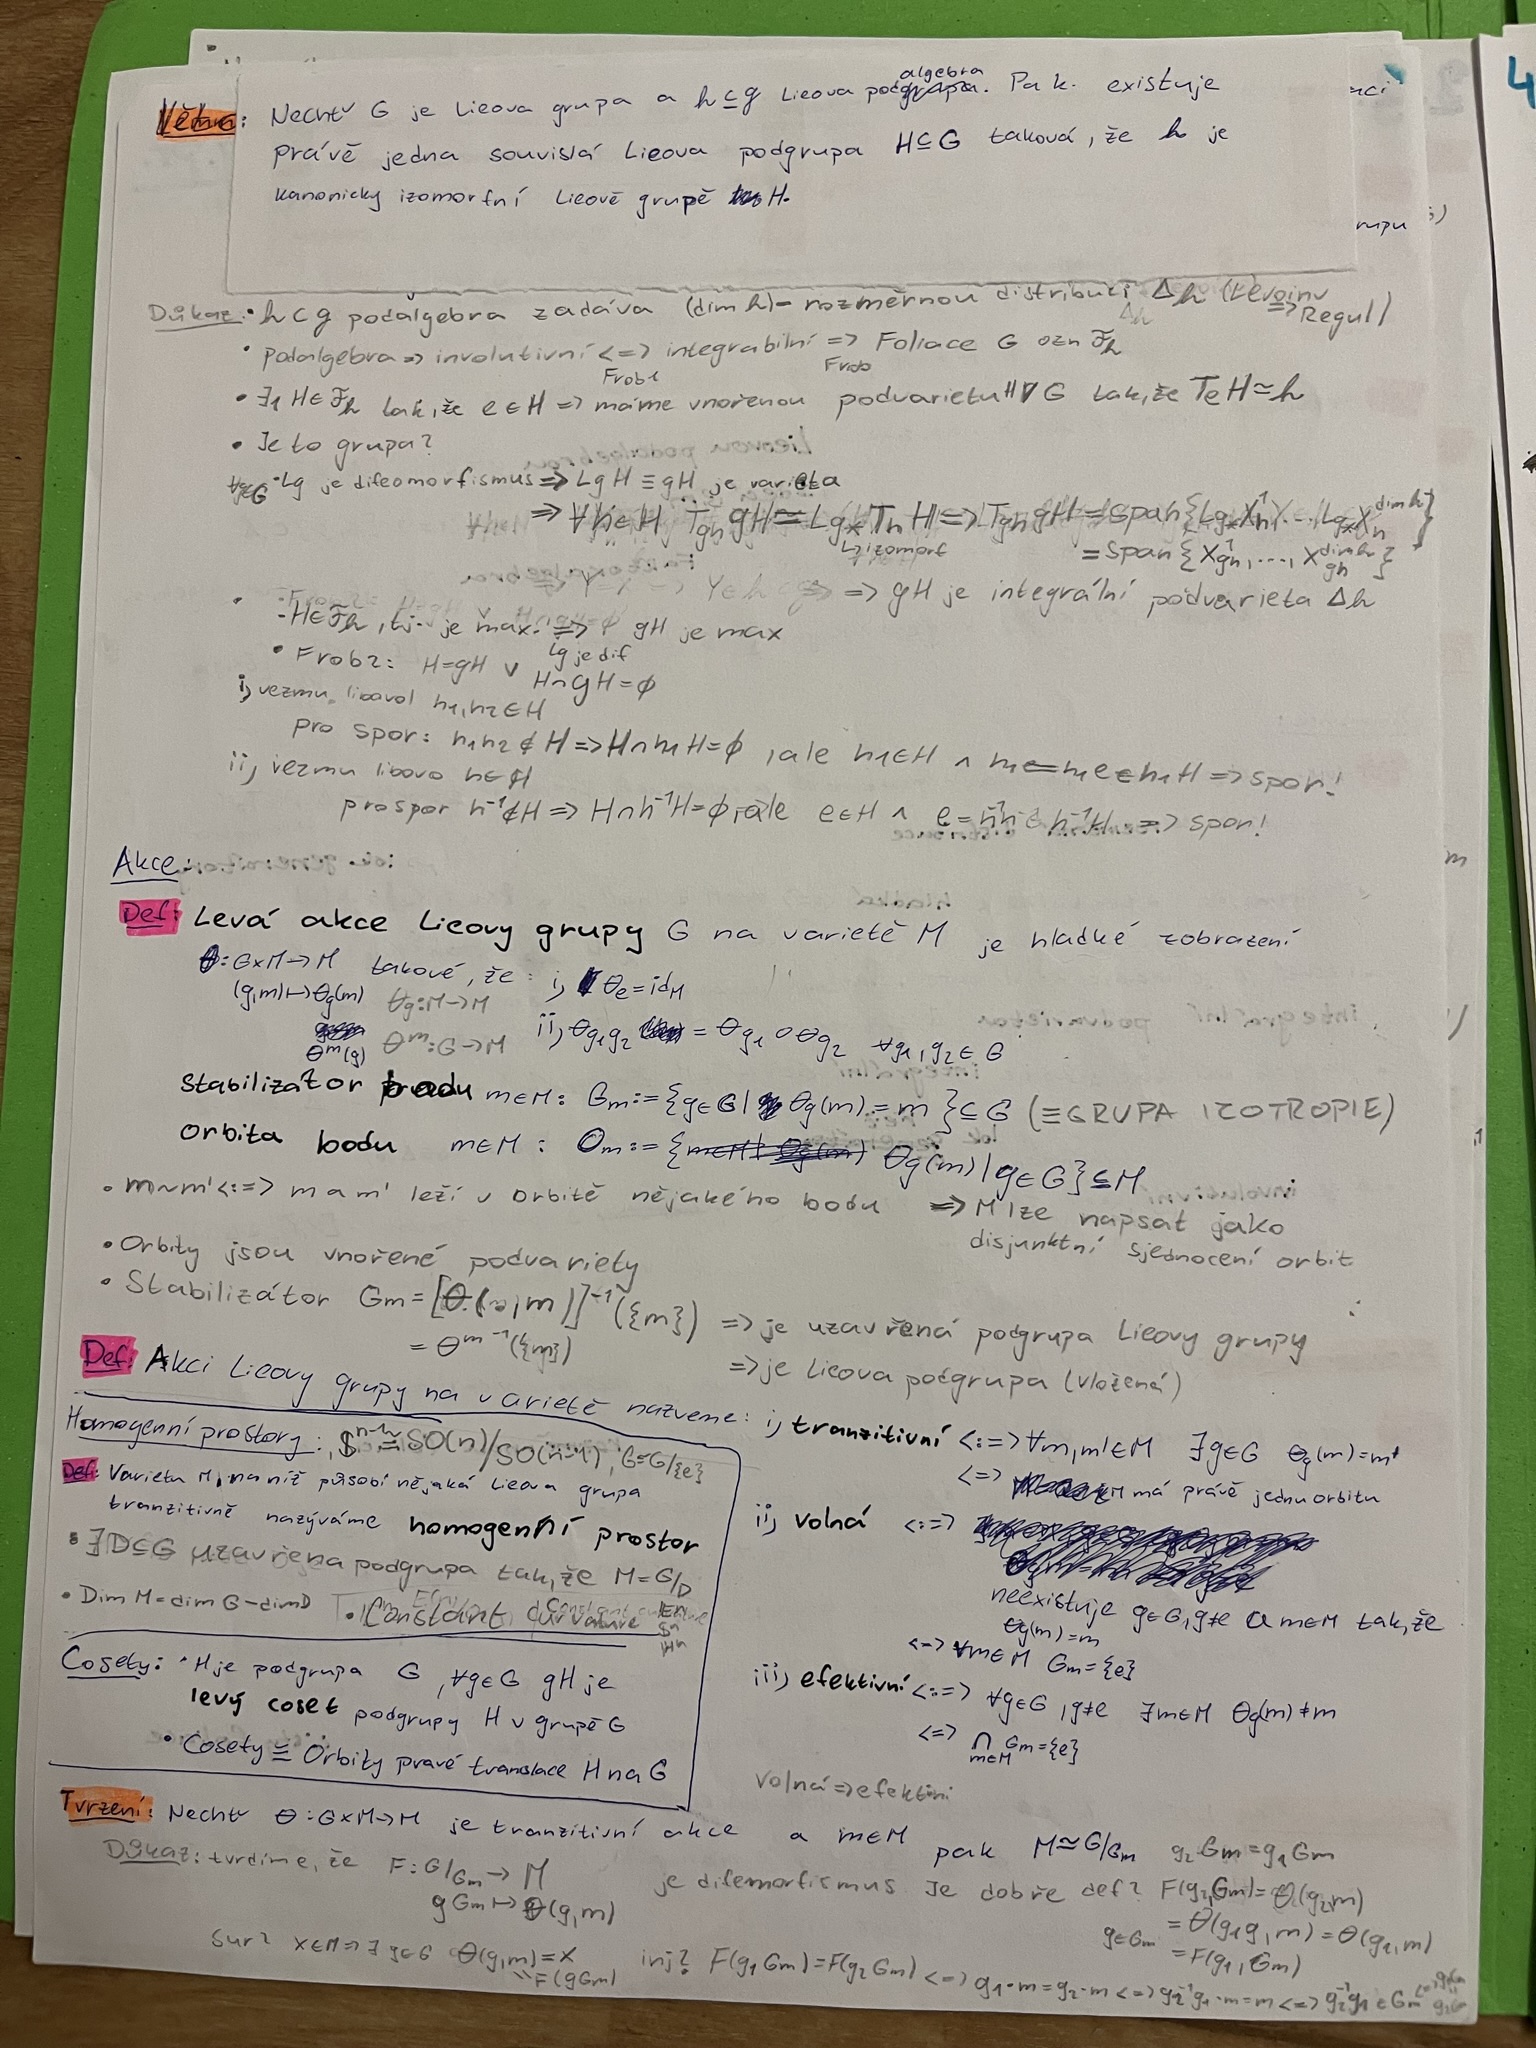 Věta: Nechť G je Lieova grupa a h⊆g Lieova podalgebra. Pak existuje
právě jedna souvislá Lieova podgrupa H⊆G taková, že h je
kanonicky izomorfní Lieově grupě H.
Důkaz: • h⊂g podalgebra zadáva (dim h)-rozměrnou distribuci Δh (Levoinv => Regul)
• podalgebra => involutivní <=> integrabilní => Foliace G ozn Fh
Frob1 Frob
• ∃1 H∈Fh tak, že e∈H => máme vnořenou podvarietu H v G tak, že TeH≃h
• Je to grupa?
∀g∈G • Lg je difeomorfismus => LgH ≡ gH je varieta
=> ∀h∈H Tgh gH ≃ Lg* Th H => Tgh gH = span{Lg*X¹h, ..., Lg*X^dim h h}
↳izomorf = span{X¹gh, ..., X^dim h gh}
=> gH je integrální podvarieta Δh
- H∈Fh, tj. je max. => gH je max
Lg je dif
• Frob2: H=gH ∨ H∩gH=∅
i, vezmu libovol h1,h2∈H
pro spor: h1h2∉H => H∩h1H=∅, ale h1∈H ∧ h1=h1e∈h1H => spor!
ii, vezmu libovo h∈H
pro spor h⁻¹∉H => H∩h⁻¹H=∅, ale e∈H ∧ e=h⁻¹h∈h⁻¹H => spor!
Akce:
Def: Levá akce Lieovy grupy G na varietě M je hladké zobrazení
θ: G×M→M takové, že: i, θe=idM
(g,m)↦θg(m) θg:M→M
θ^m(g) θ^m:G→M ii, θg1g2 = θg1∘θg2 ∀g1,g2∈G
Stabilizátor bodu m∈M: Gm:={g∈G| θg(m)=m}⊆G (≡GRUPA IZOTROPIE)
Orbita bodu m∈M: Om:={θg(m)|g∈G}⊆M
• m~m'<:=> m a m' leží v orbitě nějakého bodu => M lze napsat jako
disjunktní sjednocení orbit
• Orbity jsou vnořené podvariety
• Stabilizátor Gm=[θ(·,m)]⁻¹({m}) => je uzavřená podgrupa Lieovy grupy
= θ^m⁻¹({m}) => je Lieova podgrupa (vložená)
Def: Akci Lieovy grupy na varietě nazveme: i, tranzitivní <:=> ∀m,m'∈M ∃g∈G θg(m)=m'
<=> M má právě jednu orbitu
ii, volná <:=>
neexistuje g∈G, g≠e a m∈M tak, že
θg(m)=m
<=> ∀m∈M Gm={e}
iii, efektivní <:=> ∀g∈G, g≠e ∃m∈M θg(m)≠m
<=> ∩m∈M Gm={e}
Volná => efektivní
Homogenní prostory: S^n-1 ≅ SO(n)/SO(n-1), G≅G/{e}
Def: Varietu M, na níž působí nějaká Lieova grupa
tranzitivně nazýváme homogenní prostor
• ∃D⊆G uzavřena podgrupa tak, že M=G/D
• Dim M=dim G-dim D • Constant curvature
E^n
S^n
H^n
Cosety: • H je podgrupa G, ∀g∈G gH je
levý coset podgrupy H v grupě G
• Cosety ≡ Orbity pravé translace H na G
Tvrzení: Nechť θ:G×M→M je tranzitivní akce a m∈M pak M≃G/Gm g2Gm=g1Gm
Důkaz: tvrdíme, že F: G/Gm → M je difemorfismus Je dobře def? F(g2,Gm)=θ(g2,m)
gGm↦θ(g,m) g∈Gm = θ(g1g,m)=θ(g1,m)
=F(g1,Gm)
Sur? x∈M => ∃g∈G θ(g,m)=x inj? F(g1Gm)=F(g2Gm) <=> g1·m=g2·m <=> g2⁻¹g1·m=m <=> g2⁻¹g1∈Gm
F(gGm)